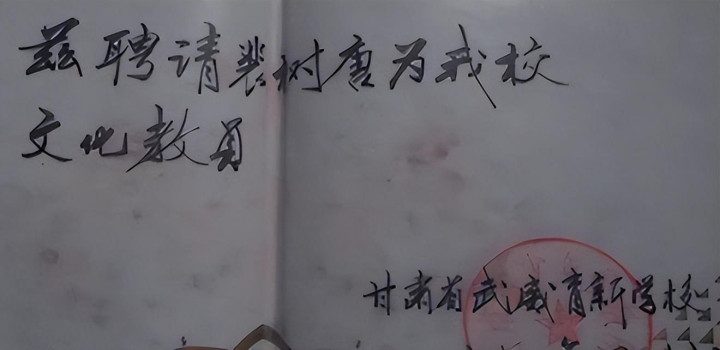 兹聘请裴树唐为我校
文化教员
甘肃省武威育新学校